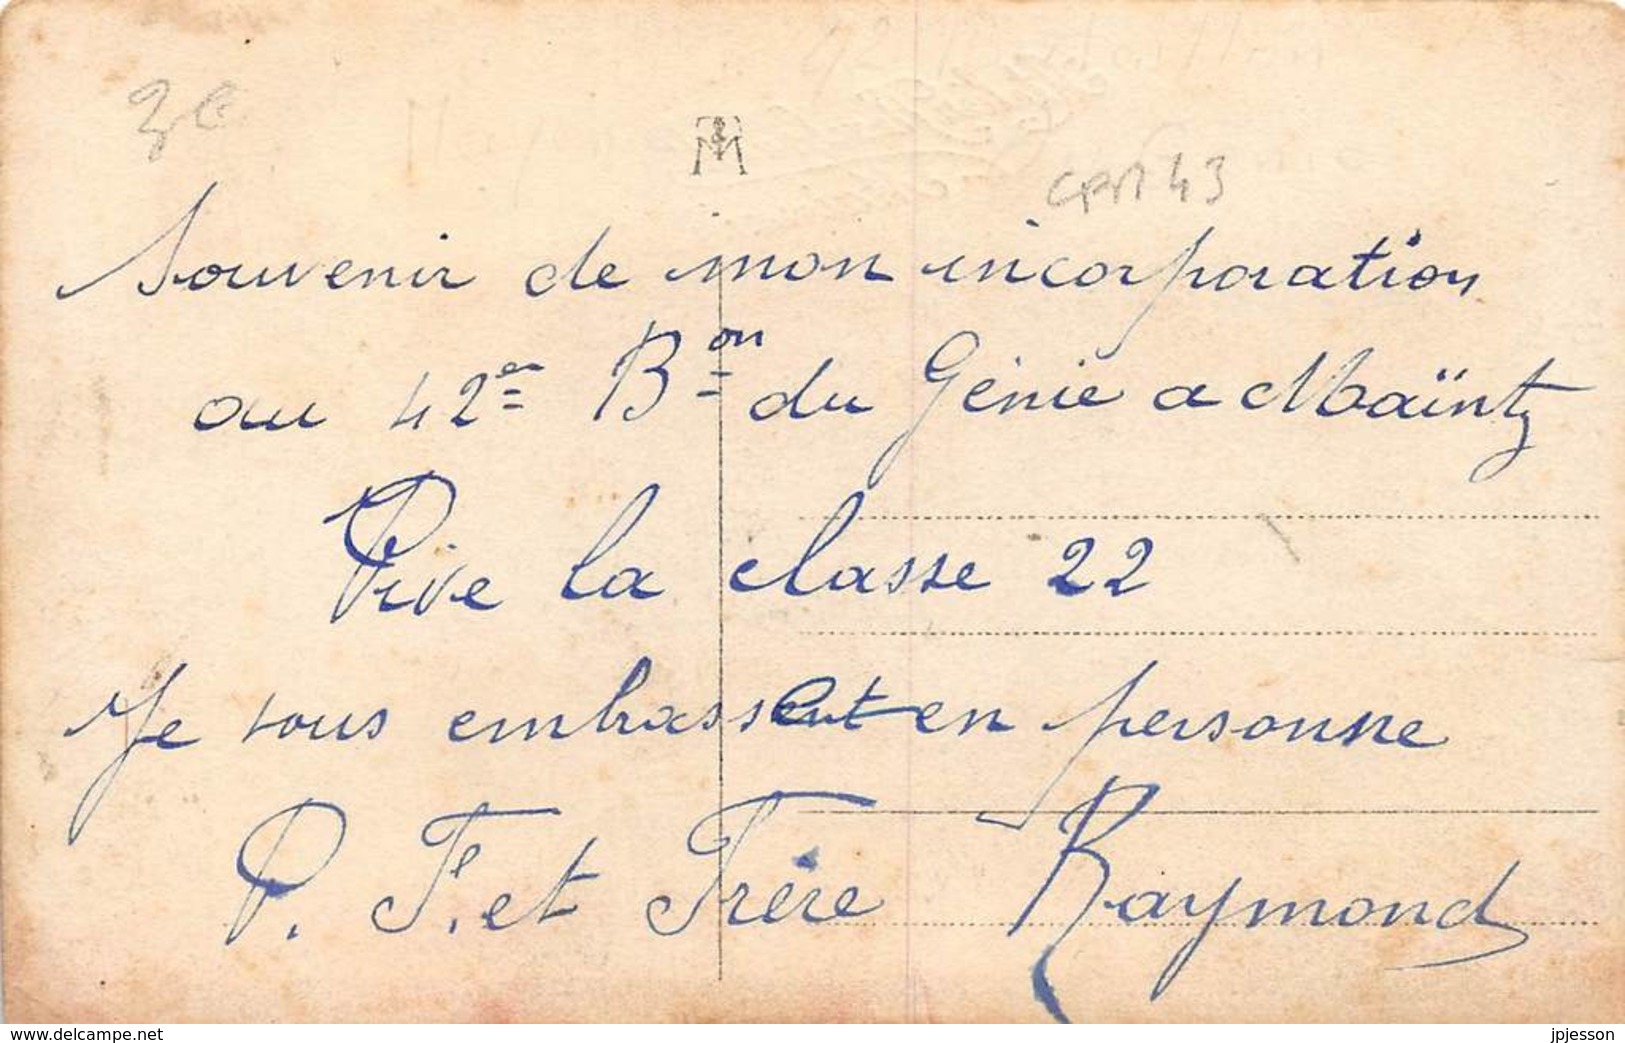 3 e
CPM 43
Souvenir de mon incorporation
au 42em Bon du Génie a Maïntz
Vive la classe 22
Je vous embrasse en personne
P. F. et Frère Raymond
www.delcampe.net
jpjesson